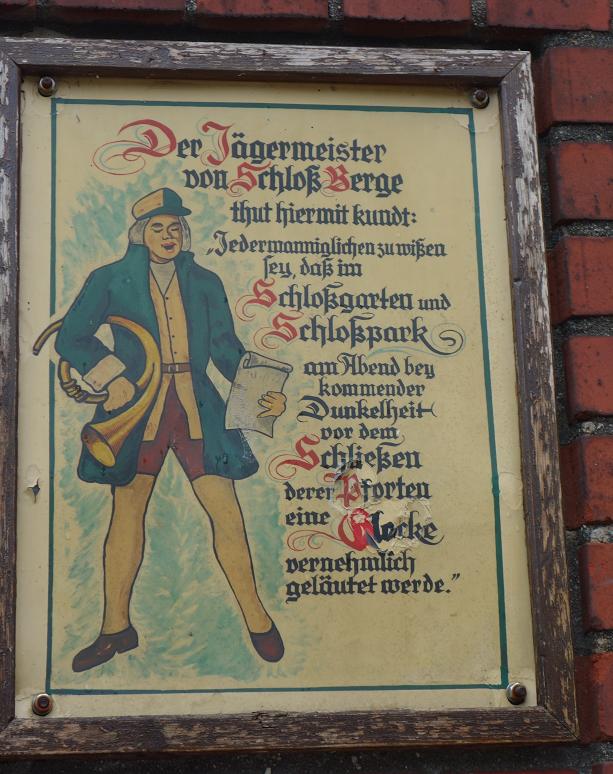 Der Jägermeister
von Schloß Berge
thut hiermit kundt:
„Jedermanniglichen zu wißen
sey, daß im
Schloßgarten und
Schloßpark
am Abend bey
kommender
Dunkelheit
vor dem
Schließen
derer Pforten
eine Glocke
vernehmlich
geläutet werde.”